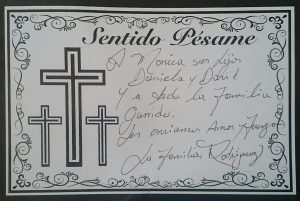 Sentido Pésame
A Monica sus hijos
Daniela y David
Y a toda la Familia
Garrido.
Les enviamos Amor
La Familia Rodriguez